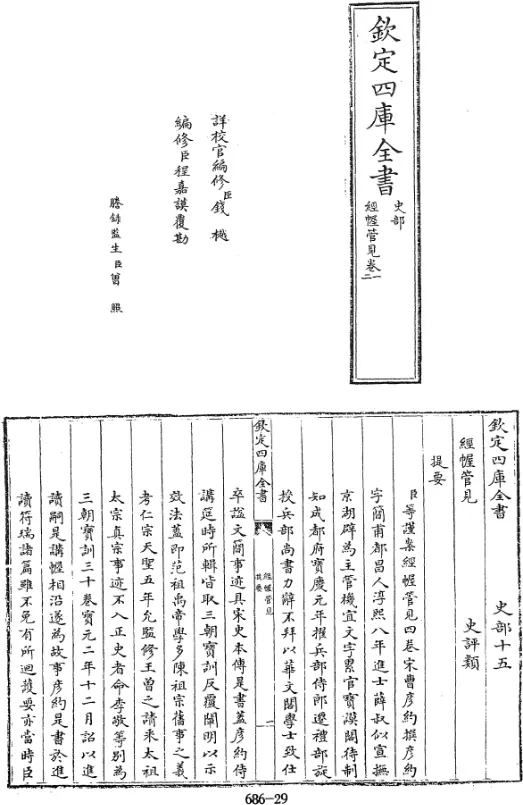 欽定四庫全書
史部
經幄管見卷一二
詳校官編修臣錢樾
編修臣程嘉謨覆勘
謄錄監生臣曾照
欽定四庫全書 史部十五
經幄管見 史評類
提要
臣等謹案經幄管見四卷宋曹彥約撰彥約
字簡甫都昌人淳熙八年進士薛叔似宣撫
京湖辟為主管機宜文字累官寶謨閣待制
知成都府寶慶元年擢兵部侍郎遷禮部旋
授兵部尚書力辭不拜以華文閣學士致仕
欽定四庫全書 經幄管見 一
卒諡文簡事迹具宋史本傳是書蓋彥約侍
講筵時所輯皆取三朝寶訓反覆闡明以示
效法蓋即范祖禹帝學多陳祖宗舊事之義
考仁宗天聖五年允監修王曾之請采太祖
太宗真宗事迹不入正史者命李淑等別為
三朝寶訓三十卷寶元二年十二月詔以進
讀嗣是講幄相沿遂為故事彥約是書於進
讀符瑞諸篇雖不免有所迴護要亦當時臣
686-29